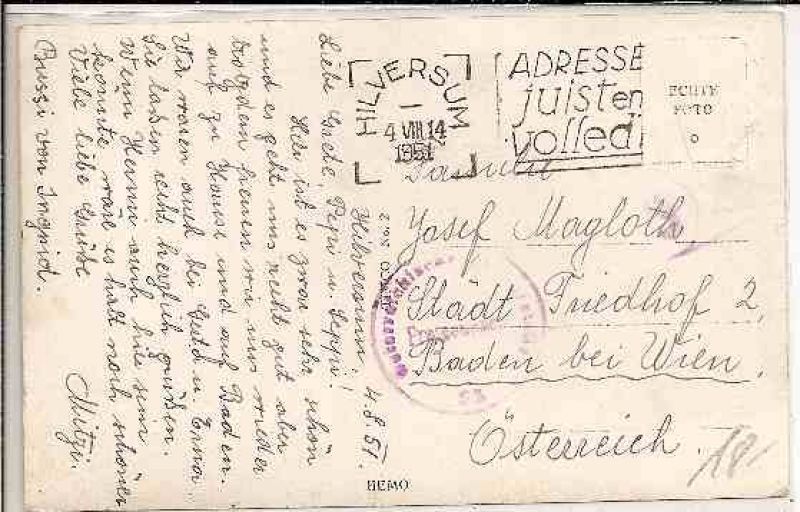 HILVERSUM
4 VIII 14
1951
ADRESSE
juist en
volledi
ECHTE
FOTO
Hilversum, 4.8.51.
Liebe Gretl, Pepi u. Seppi!
Hier ist es zwar sehr schön
und es geht uns recht gut aber
trotzdem freuen wir uns wieder
auf zu Hause und auf Baden.
Wir waren auch bei Gretl u. Erna.
Sie lassen recht herzlich grüßen.
Wenn Hermi auch hier sein
könnte wäre es halt noch schöner
Viele liebe Grüße
Mitzi.
Bussi von Ingrid.
Familie
Josef Magloth,
Städt Friedhof 2,
Baden bei Wien,
Österreich.
HEMO
18